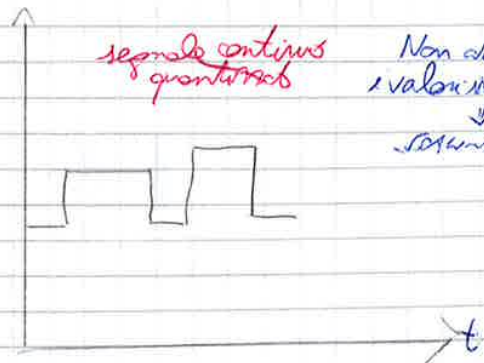 segnale continuo
quantizzato
Non
i valori
t